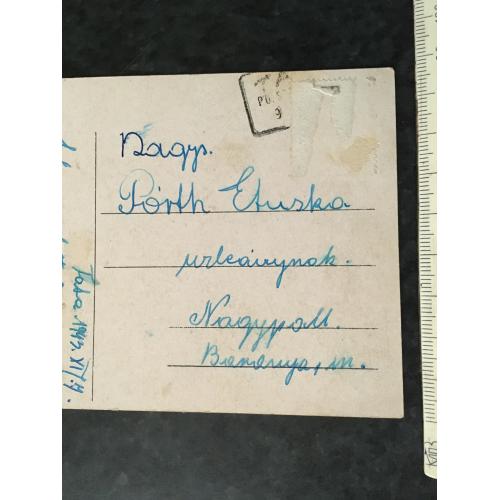 Nagys.
Pórth Etuska
urleánynak.
Nagypall.
Baranya, m.
Tata. 1943. XII/4.